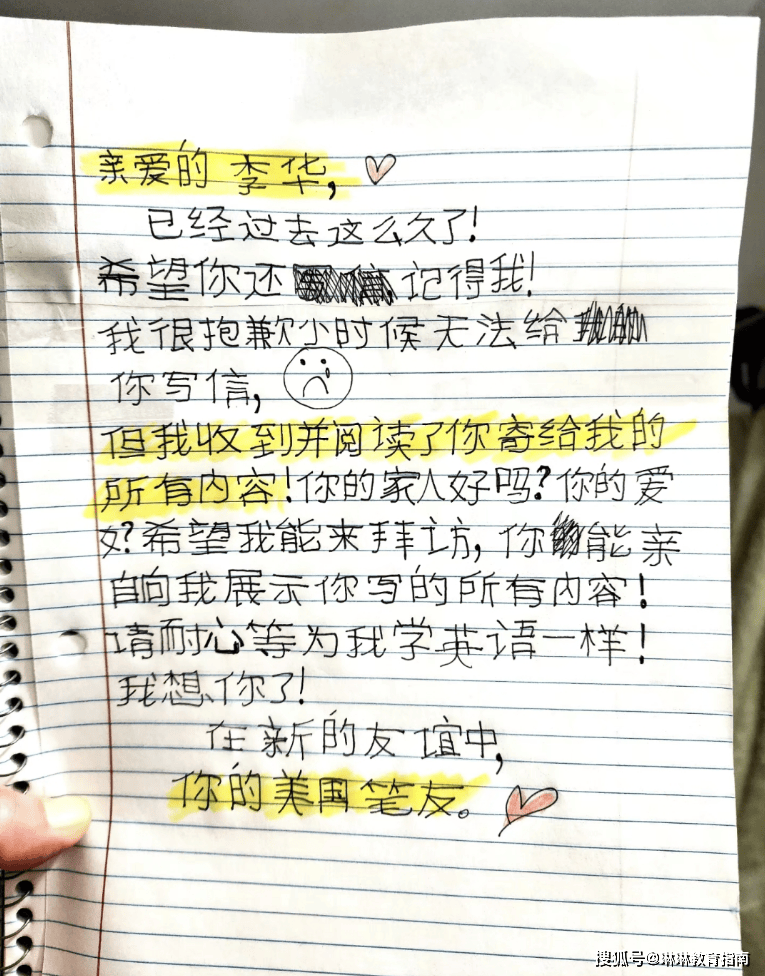 亲爱的 李华,
已经过去这么久了!
希望你还 记得我!
我很抱歉小时候无法给
你写信,
但我收到并阅读了你寄给我的
所有内容!你的家人好吗?你的爱
好?希望我能来拜访,你 能亲
自向我展示你写的所有内容!
请耐心等为我学英语一样!
我想你了!
在新的友谊中,
你的美国笔友。
搜狐号@琳琳教育指南